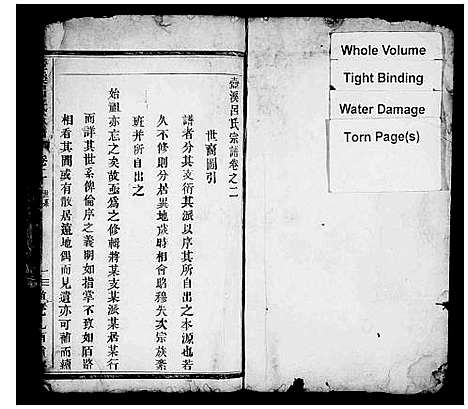 壺溪呂氏宗譜卷之二
世裔圖引
譜者分其支衍其派以序其所自出之本源也若
久不修則分居異地歲時相會昭穆失次宗族紊
班并所自出之
始祖亦忘之矣故亟為之修輯將某支某派某居某行
而詳其世系俾倫序之義明如指掌不致如陌路
相看其間或有散居遠地偶而見遺亦可補而續
Whole Volume
Tight Binding
Water Damage
Torn Page(s)